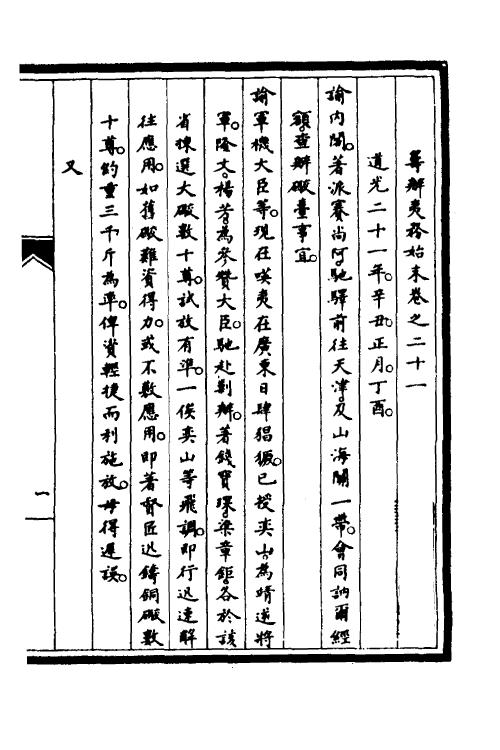 籌辦夷務始末卷之二十一
道光二十一年。辛丑。正月。丁酉。
諭內閣。著派賽尚阿。馳驛前往天津。及山海關一帶。會同訥爾經
額。查辦礮臺事宜。
諭軍機大臣等。現在㗸夷在廣東日肆猖獗。已授奕山。為靖逆將
軍。隆文。楊芳。為參贊大臣。馳赴剿辦。著錢寶琛。梁章鉅。各於該
省揀選大礮數十尊。試放有準。一俟奕山等飛調。即行迅速解
往應用。如舊礮難資得力。或不敷應用。即著督匠迅鑄銅礮數
十尊。約重三千斤為準。俾資輕捷而利施放。毋得遲誤。
又
一